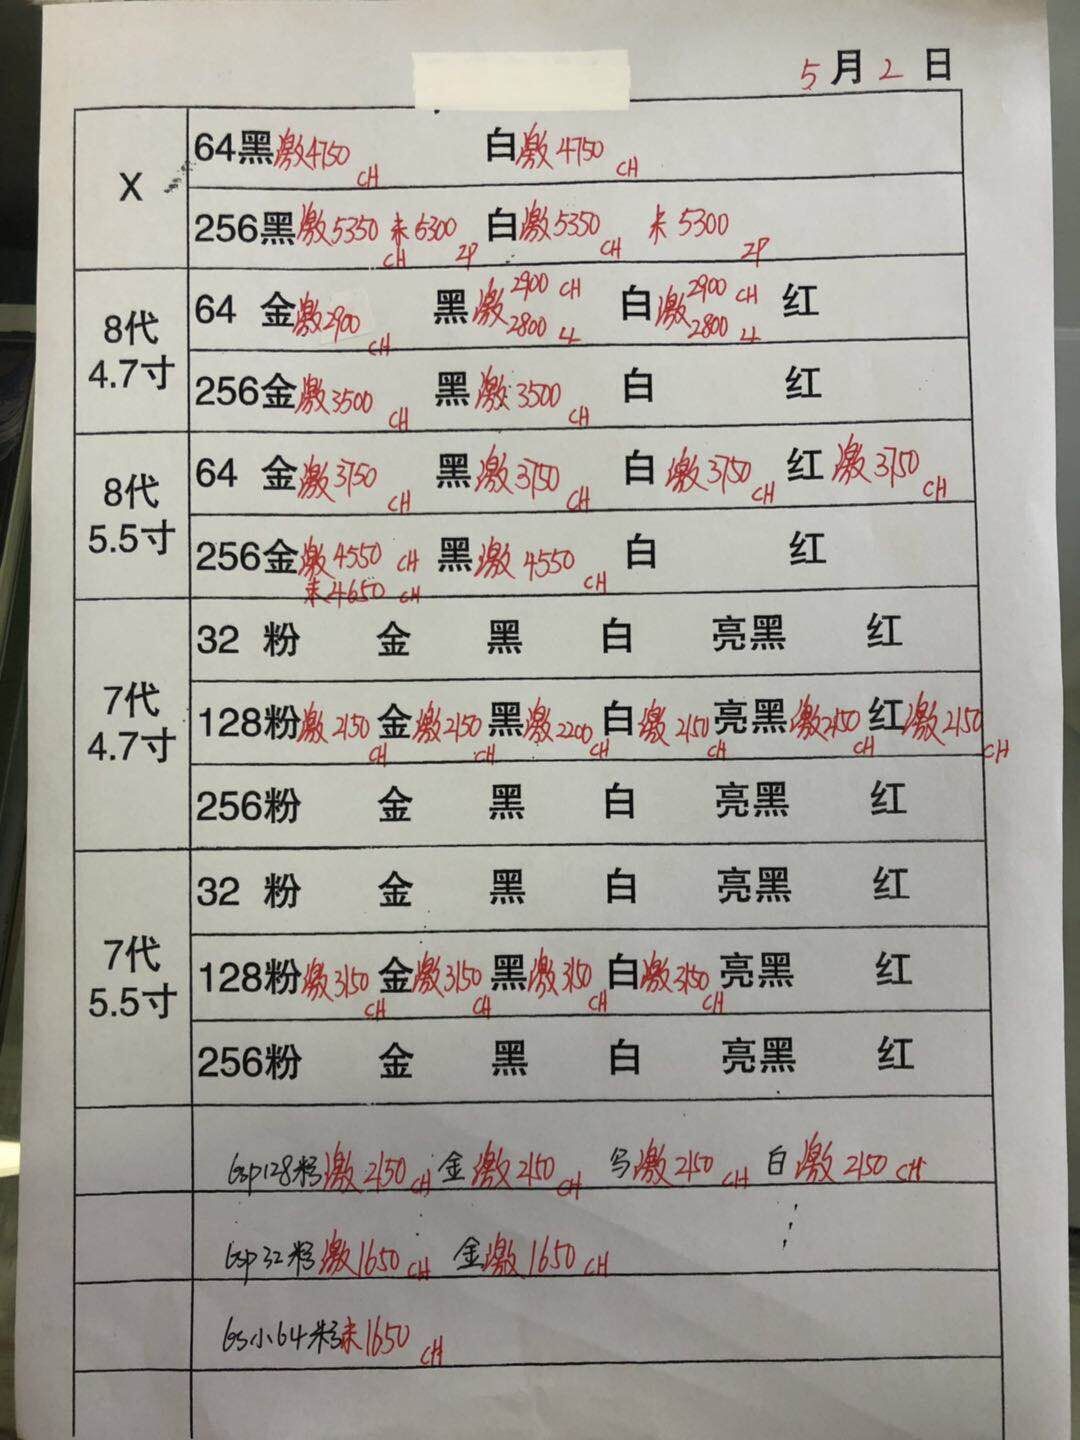 5月2日
X
64黑激4750 CH 白激4750 CH
256黑激5350 CH 未5300 ZP 白激5350 CH 未5300 ZP
8代
4.7寸
64 金激2900 CH 黑激2900 CH 2800 LL 白激2900 CH 2800 LL 红
256金激3500 CH 黑激3500 CH 白 红
8代
5.5寸
64 金激3750 CH 黑激3750 CH 白激3750 CH 红激3750 CH
256金激4550 CH 黑激4550 CH 白 红
未4650 CH
7代
4.7寸
32 粉 金 黑 白 亮黑 红
128粉激2150 CH 金激2150 CH 黑激2200 CH 白激2150 CH 亮黑激2150 CH 红激2150 CH
256粉 金 黑 白 亮黑 红
7代
5.5寸
32 粉 金 黑 白 亮黑 红
128粉激3150 CH 金激3150 CH 黑激3150 CH 白激3150 CH 亮黑 红
256粉 金 黑 白 亮黑 红
6sp128粉激2150 CH 金激2150 CH 激2150 CH 白激2150 CH
6sp32粉激1650 CH 金激1650 CH
6s小64粉未1650 CH